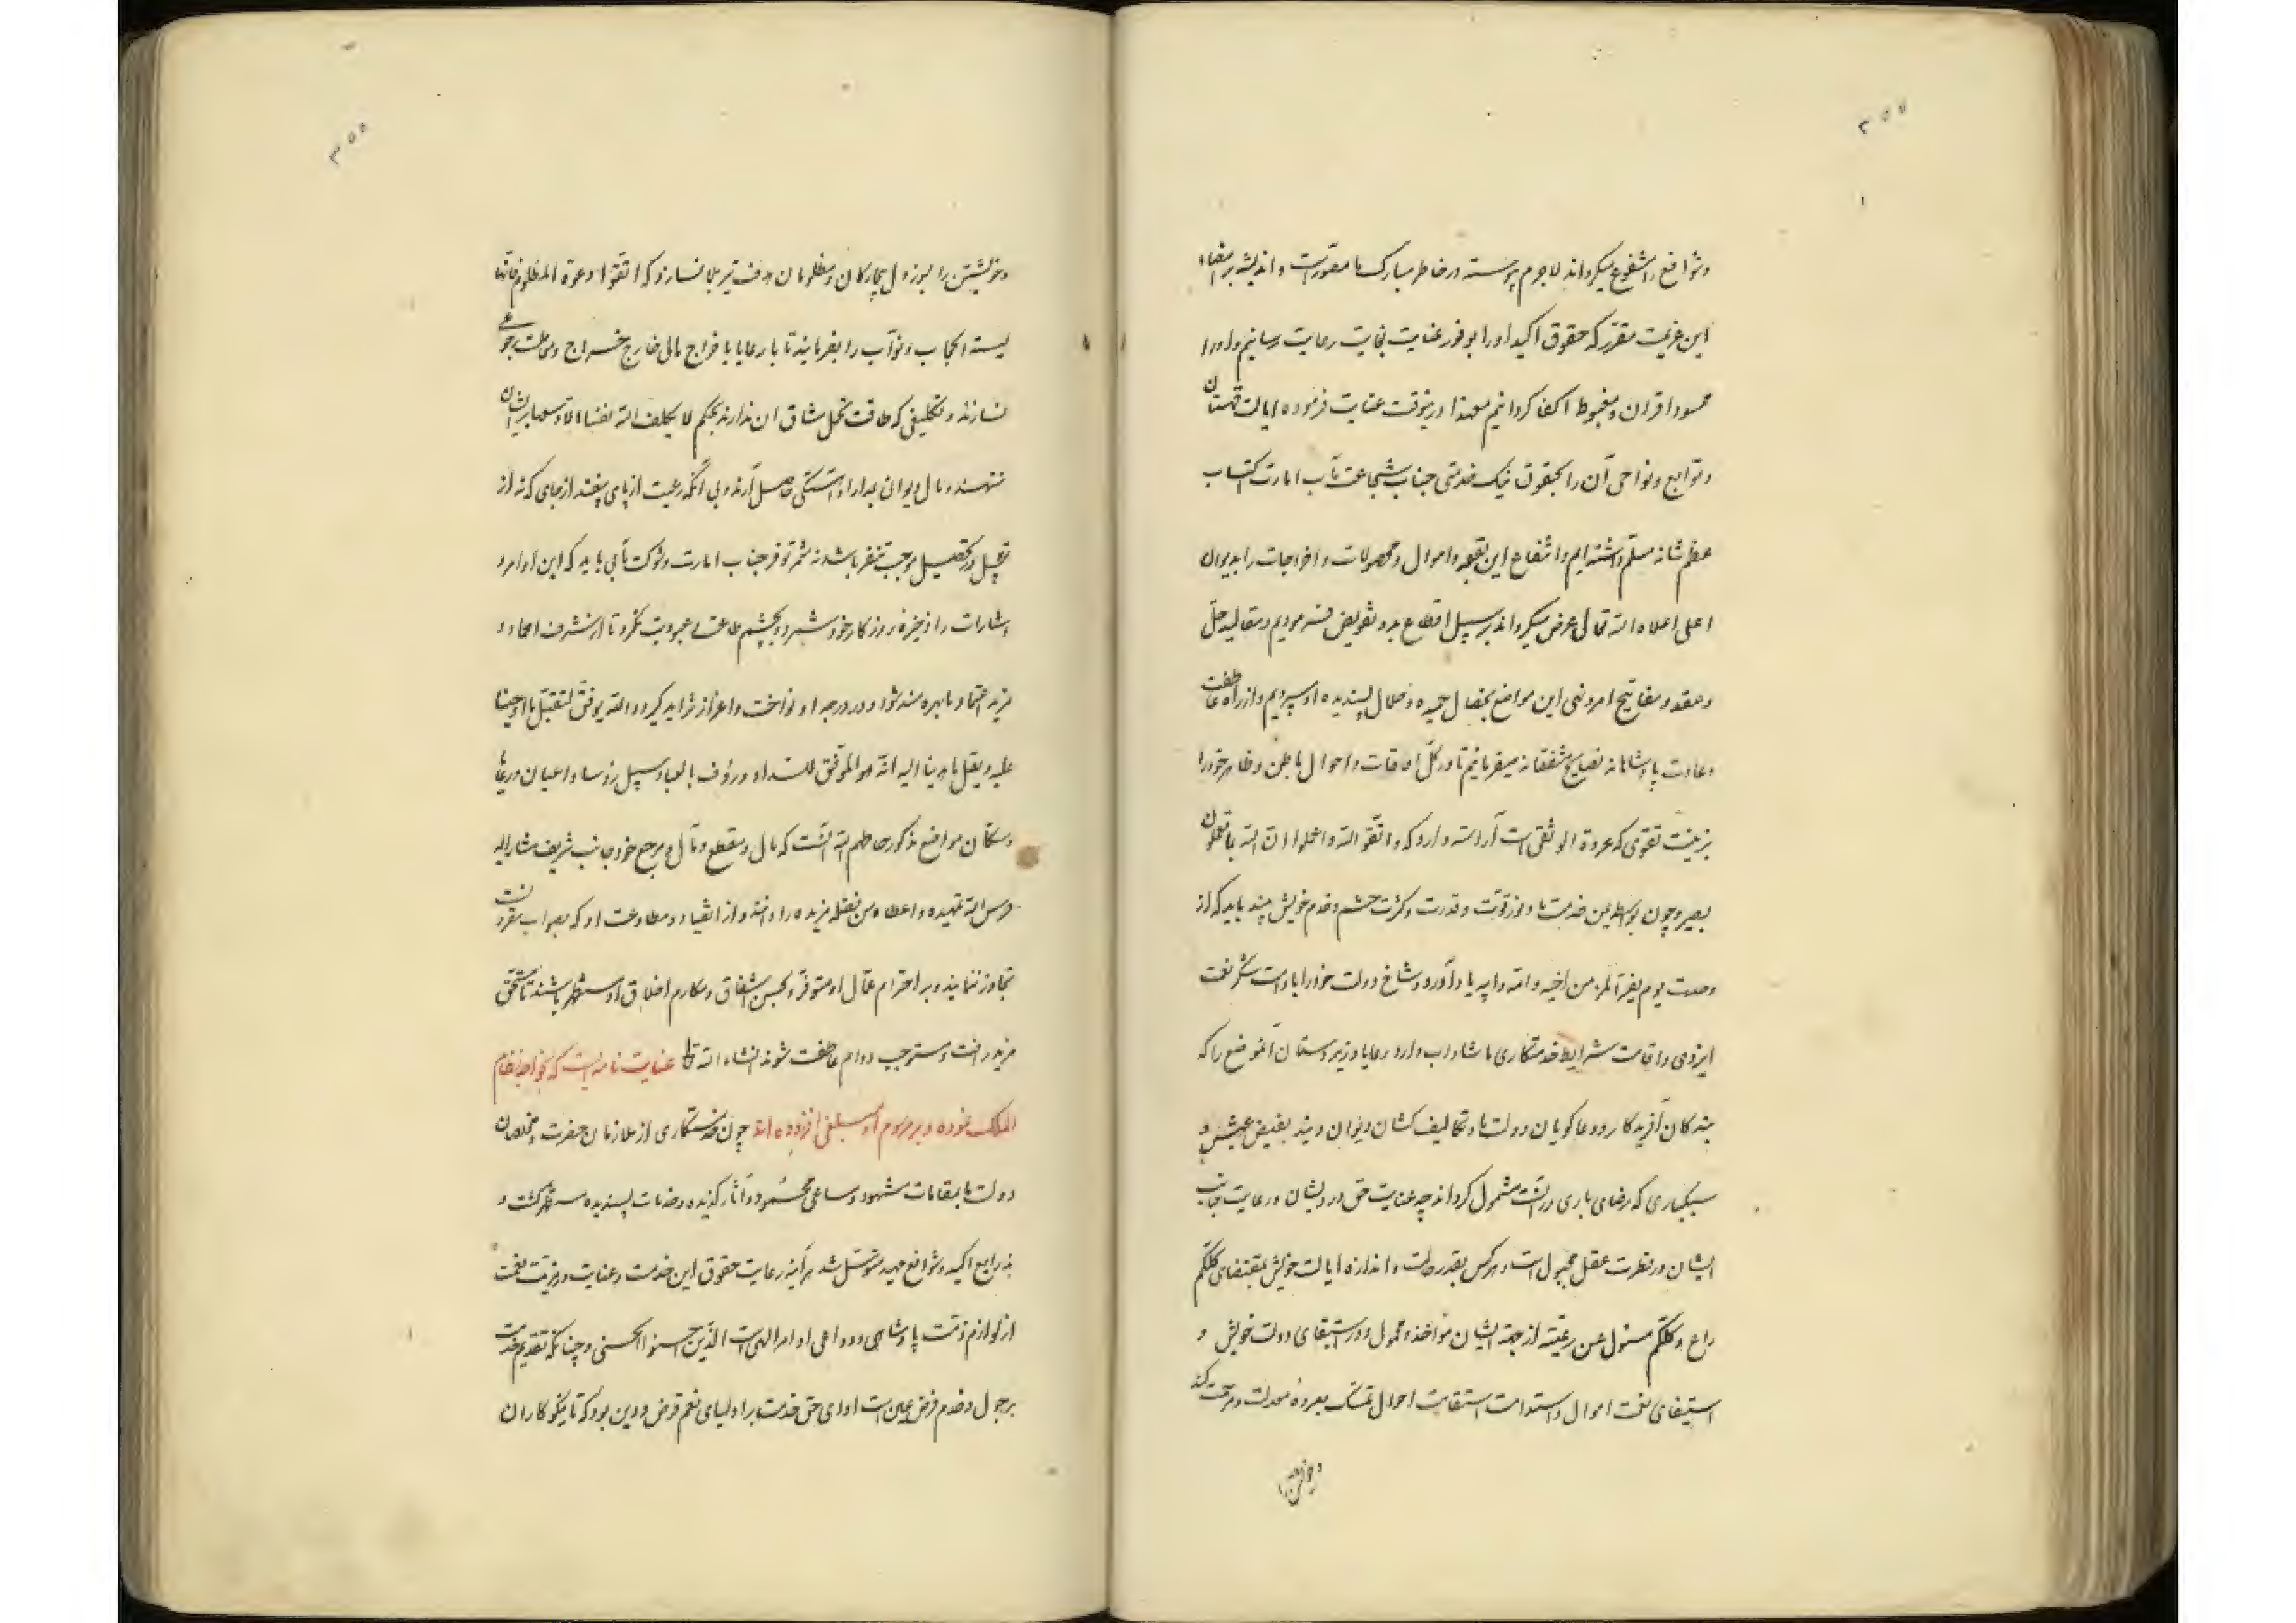 وشوافع را شفوع میکرداند لاجرم پوسته در خاطر مبارک ما مصورست و اندیشه بر امضاء
این عزیمت مقرر که حقوق اکید او را بوفور عنایت نجایت رعایت رسانیم و او را
محسود اقران و مغبوط اکفا کردانیم معهذا درینوقت عنایت فرموده ایالت قهستان
و توابع و نواحی آن را بحقوق نیک خدمتی جناب شجاعت مآب امارت اکتساب
عظم شانه مسلم داشته ایم و انتفاع این بقعه و اموال و محصولات و اخراجات را بدیوان
اعلی اعلاه الله تعالی عرض میکرداند بر سبیل اقطاع بدو تفویض فرمودیم و مقالید حل
و عقد و مفاتیح امر و نهی این مواضع بخصال حمیده و خلال پسندیده او سپردیم و از راه عاطفت
و عادت پادشاهانه نصایح مشفقانه میفرمائیم تا در کل اوقات و احوال باطن و ظاهر خود را
بزینت تقوی که عروة الوثقی است آراسته دارد که و اتقوا الله و اعلموا ان الله بما تعملون
بصیر و چون بواسطه این خدمت ما وفور قوت و قدرت و کثرت حشم و خدم خویش بیند باید که از
وحدت یوم یفر المرء من اخیه و امه و ابیه یاد آورد و شاخ دولت خود را بادامت شکر نعمت
ایزدی و اقامت شرایط خدمتکاری ما شاداب دارد و رعایا و زیردستان آنموضع را که
بندکان آفریدکار و دعاکویان دولت ما و تکالیف کشان دیوان ویند بفیض عیش و
سبکباری که رضای باری درآنست مشمول کرداند چه عنایت حق درویشان و رعایت جانب
ایشان در فطرت عقل مجبول است و هرکس بقدر حالت و اندازه ایالت خویش بمقتضای کلکم
راع و کلکم مسئول عن رعیته از جهة ایشان مواخذ و محمول و در استبقای دولت خویش و
استیفای نعمت اموال و استدامت استقامت احوال تمسک بعروهٔ معدلت و مرحمت کند
وخویشتن را
وخویشتن را بسوز دل بیچارکان و مظلومان هدف تیر بلا نسازد که اتقوا دعوة المظلوم فانها
لیسته الحجاب و نواب را بفرمایند تا با رعایا باخراج مال خارج خراج و علت رجوعی
نسازند و تکلیفی که طاقت تحمل مشاق ان ندارند بحکم لا یکلف الله نفسا الا وسعها بر ایشان
ننهند و مال دیوان بمدارا و آهستکی حاصل آرند و بی آنکه رعیت از پای بیفتد از جای که نه از
تعجیل در تحصیل موجب تنفر باشد نه مثمر توفر جناب امارت و شوکت مآبی باید که این اوامر و
اشارات را ذخیره روزکار خود شمرد و بچشم طاعت و عبودیت نکرد تا از شرف احماد و
مزید اعتماد ما بهره مند شود و در درجه او نواخت و اعزاز تزاید کیرد و الله یوفق لتقبل ما اوحینا
علیه و یقبل ما هدینا الیه انه هو الموفق للسداد و رؤف بالعباد سبیل رؤسا و اعیان و رعایا
و سکان مواضع مذکور حاطهم الله آنست که مال و مقطع و مآل و مرجع خود جانب شریف مشارالیه
حرس الله تمهیده و اعطاه من فضله مزیده را دانند و از انقیاد و مطاوعت او که بصواب مقرونست
تجاوز ننمایند و بر احترام عمال او متوفر و بحسن اشفاق و مکارم اخلاق او مستظهر باشند تا مستحق
مزید رافت و مستوجب دوام عاطفت شوند انشاء الله تعالی عنایت نامه ایست که بخواجه نظام
الملک نموده و بر مرسوم او مبلغی افزوده اند چون خدمتکاری از ملازمان حضرت و مخلصان
دولت ما بمقامات مشهود و مساعی محمود و آثار کزیده و خدمات پسندیده مستظهر کشت و
بذرایع اکید و شوافع مهید متوسل شد هرآینه رعایت حقوق این خدمت و عنایت و تربیت نعمت
از لوازم ذمت پادشاهی و دواعی اوامر الهی است للذین احسنوا الحسنی و چنانکه تقدیم خدمت
برخول و خدم فرض عین است ادای حق خدمت بر اولیای نعم قرض و دین بود که تا نیکوکاران